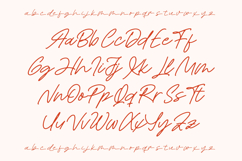 a b c d e f g h i j k l m n o p q r s t u v w x y z
Aa Bb Cc Dd Ee Ff
Gg Hh Ii Jj Kk Ll Mm
Nn Oo Pp Qq Rr Ss Tt
Uu Vv Ww Xx Yy Zz
a b c d e f g h i j k l m n o p q r s t u v w x y z